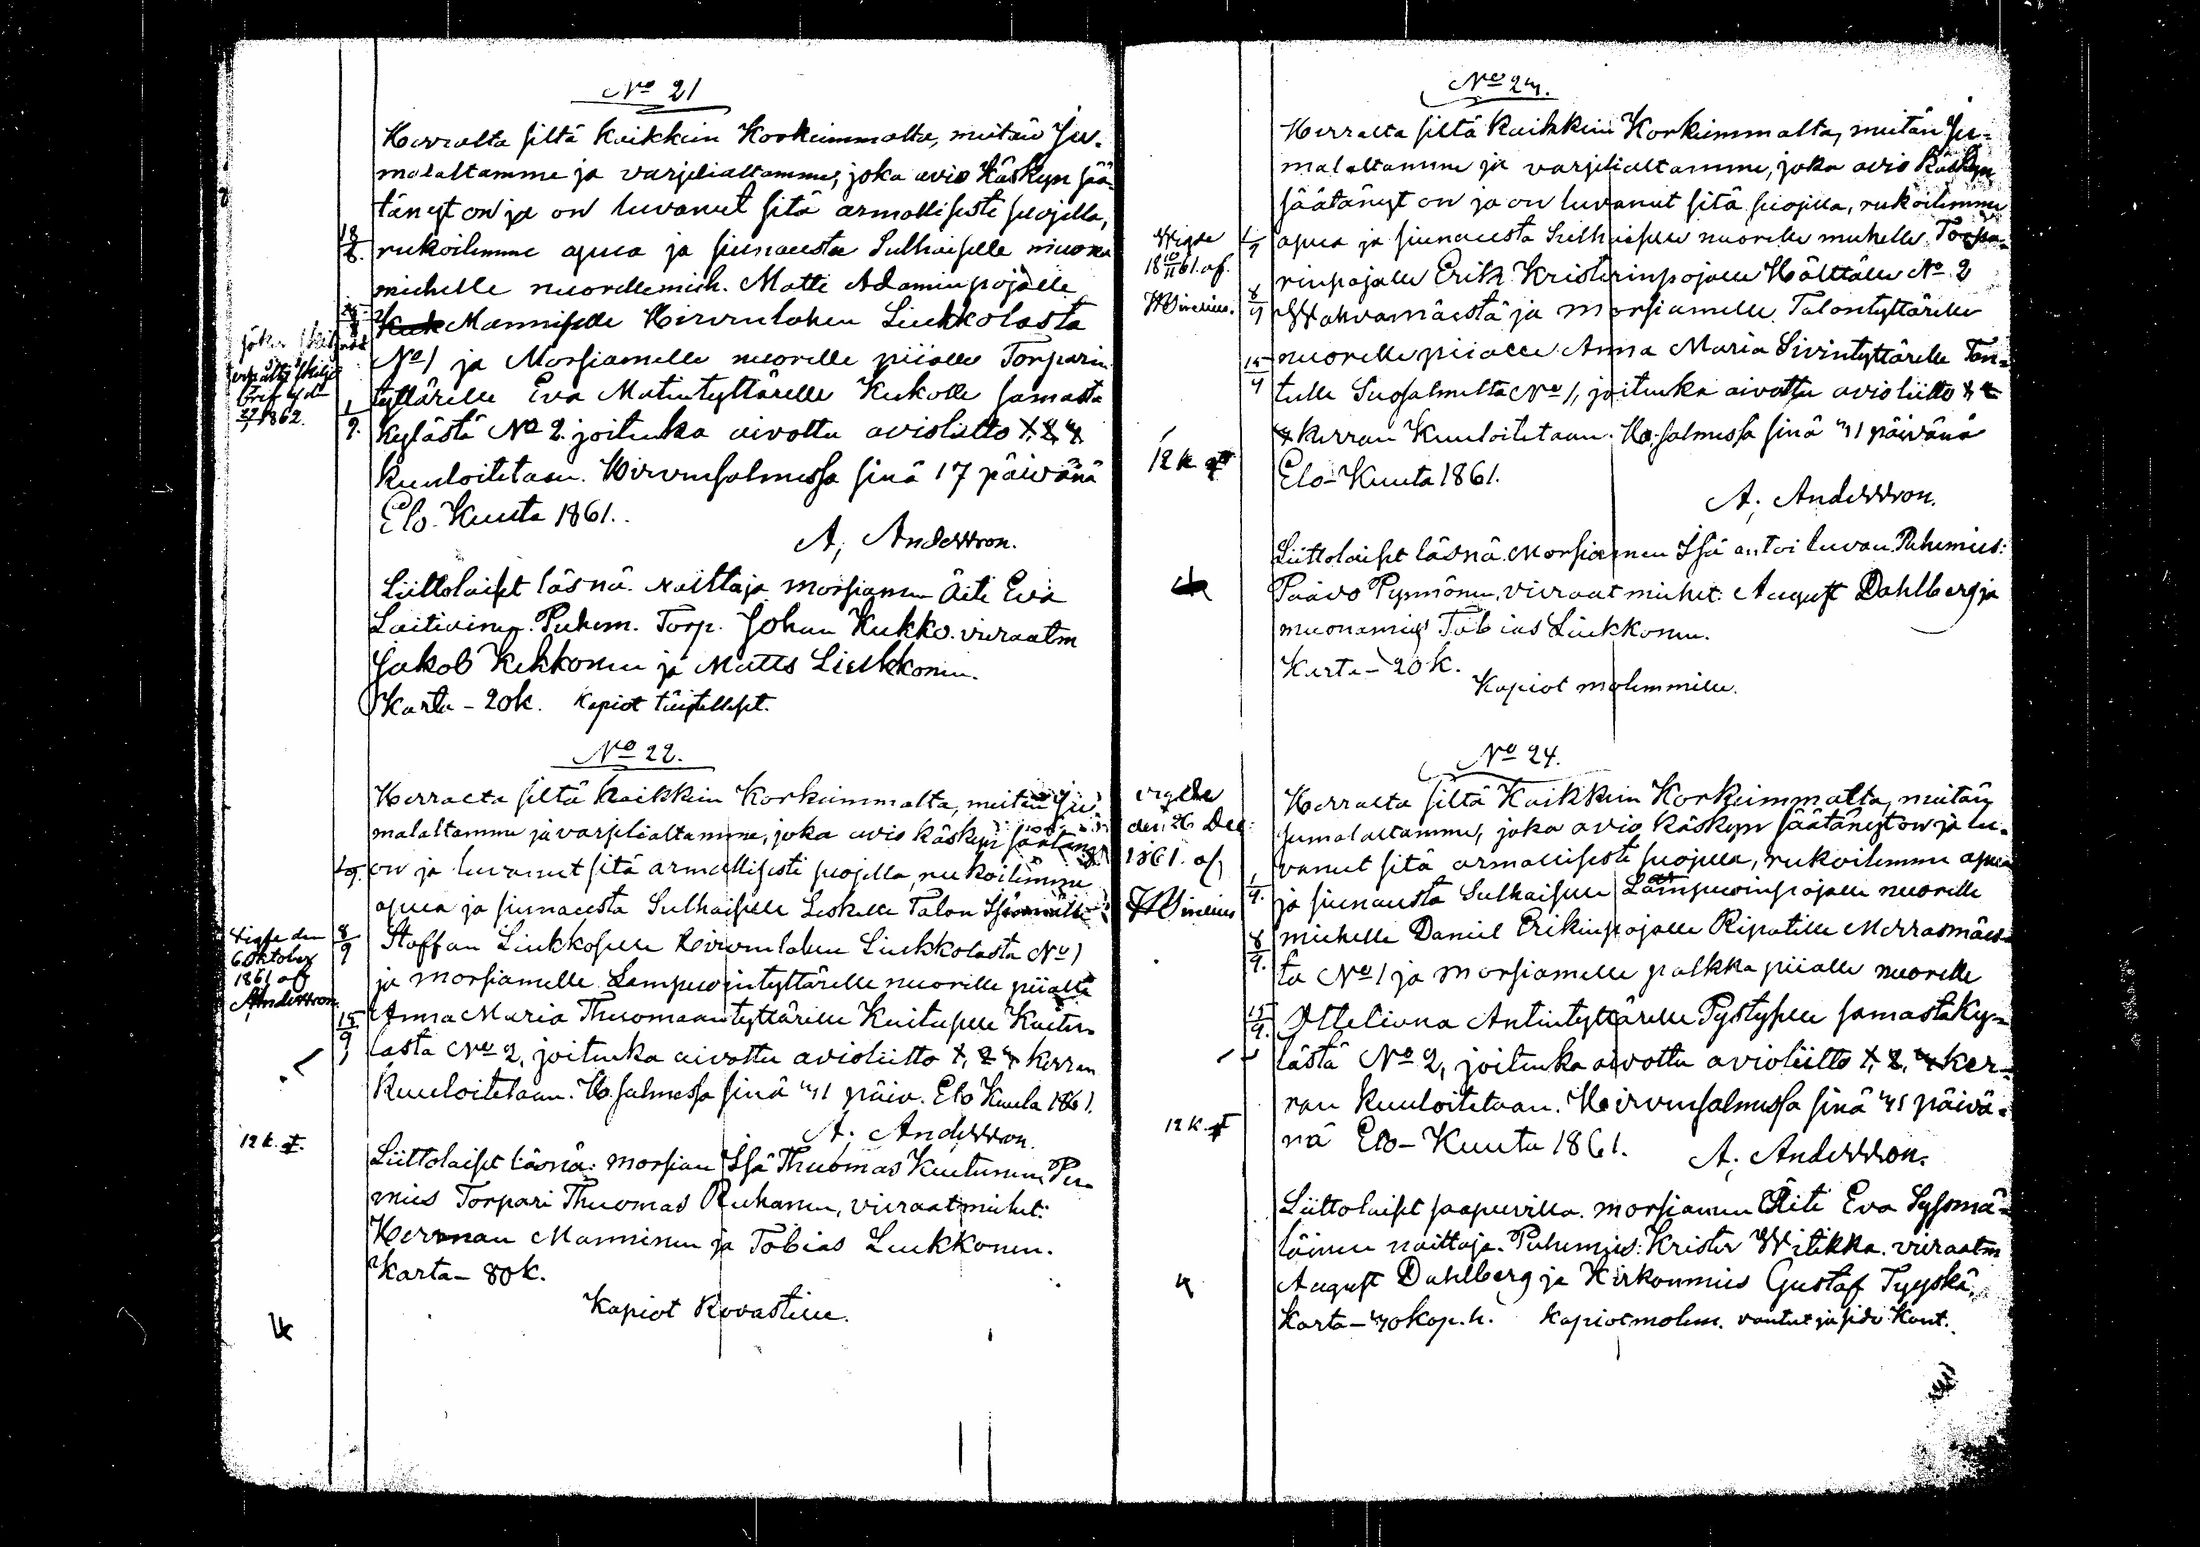 No 21
Herralta siltä kaikkein Korkeimmalta, meitän Ju-
malaltamme ja varjelialtamme, joka avio Käskyn sää-
tänyt on ja on luvanut sitä armollisesti suojella,
18/8. rukoilemme apua ja siunausta Sulhaiselle muona
miehelle nuorellemieh. Matti Adaminpojalle
Manniselle Hirvenlahen Liukkolasta
No 1 ja Morsiamelle nuorelle piialle Torparin
tyttärelle Eva Matintyttärelle Kukolle samasta
1/9. Kylästä No 2. joitenka aivottu avioliitto 1, 2, 3
kuuloitetaan. Hirvensalmessa sinä 17 päivänä
Elo-Kuuta 1861.
A, Andersson.
27/7 1862.
Liittolaiset läsnä. Naittaja morsiamen Äiti Eva
Laitivinen. Puhem. Torp. Johan Kukko. vieraatm
Jakob Kekkonen ja Matts Liukkonen.
Karta - 20k. Kapiot täytelliset.
No 22.
Herralta siltä kaikkein Korkeimmalta, meitän Ju
malaltamme ja varjelialtamme, joka avio käskyn säätäny
1/9. on ja luvanut sitä armollisesti suojella, rukoilemme
apua ja siunausta Sulhaiselle Leskelle Talon Isännälle
8/9 Staffan Liukkoselle Hirvenlahen Liukkolasta No 1
ja morsiamelle Lampuovintyttärelle nuorelle piialle
Anna Maria Thuomaantyttärelle Kuituselle Kuitu-
15/9 lasta No 2, joitenka aivottu avioliitto 1, 2 3 kerran
Kuuloitetaan. H.salmessa sinä 31 päiv. Elo Kuuta 1861.
A. Andersson.
Vigde den
6 Oktober
1861 af
A Andersson.
12 k. f.
Liittolaiset läsnä: morsian Isä Thuomas Kuitunen Pu-
mies Torpari Thuomas Ruhanen, vieraatmiehet:
Herman Manninen ja Tobias Liukkonen.
Karta - 80k.
Kapiot Rovastille.
No 23.
Herralta siltä kaikkein Korkeimmalta, meitän Ju-
malaltamme ja varjelialtamme, joka avio Käskyn
säätänyt on ja on luvanut sitä suojella, rukoilemme
1/9 apua ja siunausta Sulhaiselle nuorelle miehelle Torpa-
rinpojalle Erik Kristerinpojalle Hälttälle No 2
8/9 Wahvamäestä ja morsiamelle Talontyttärelle
15/9 nuorelle piialle Anna Maria Sivintyttärelle Ton-
tulle Suosalmelta No 1, joitenka aivottu avioliitto 1, 2
3 kerran Kuuloitetaan. H.salmessa sinä 31 päivänä
Elo-Kuuta 1861.
A, Andersson.
Wigde
18 10/11 61. af.
12 k. f
Liittolaiset läsnä. Morsiamen Isä antoi luvan. Puhemies:
Paavo Pynnönen, vieraat miehet: August Dahlberg ja
muonamies Tobias Liukkonen.
Karta - 20k.
Kapiot molemmille.
No 24.
Herralta siltä Kaikkein Korkeimmalta, meitän
Jumalaltamme, joka avio käskyn säätänyt on ja lu-
vanut sitä armollisesti suojella, rukoilemme apua
1/9. ja siunausta Sulhaiselle Lampuovinpojalle nuorelle
8/9. miehelle Daniel Erikinpojalle Ripatille Merrasmäes-
ta No 1 ja morsiamelle palkka piialle nuorelle
15/9. Helena Antintyttärelle Pystyselle samasta Ky-
lästä No 2, joitenka aivottu avioliitto 1, 2, 3 ker-
ran Kuuloitetaan. Hirvensalmessa sinä 31 päivä-
nä Elo-Kuuta 1861.
A. Andersson.
vigde
den 26 Dec
1861. af
12 K. f
Liittolaiset saapuvilla. morsiamen Äiti Eva Sysmä-
läinen naittaja. Puhemies: Krister Witikka. vieraatm
August Dahlberg ja Kirkonmies Gustaf Tyyskä,
Karta - 30kop. h. Kapiot molem.